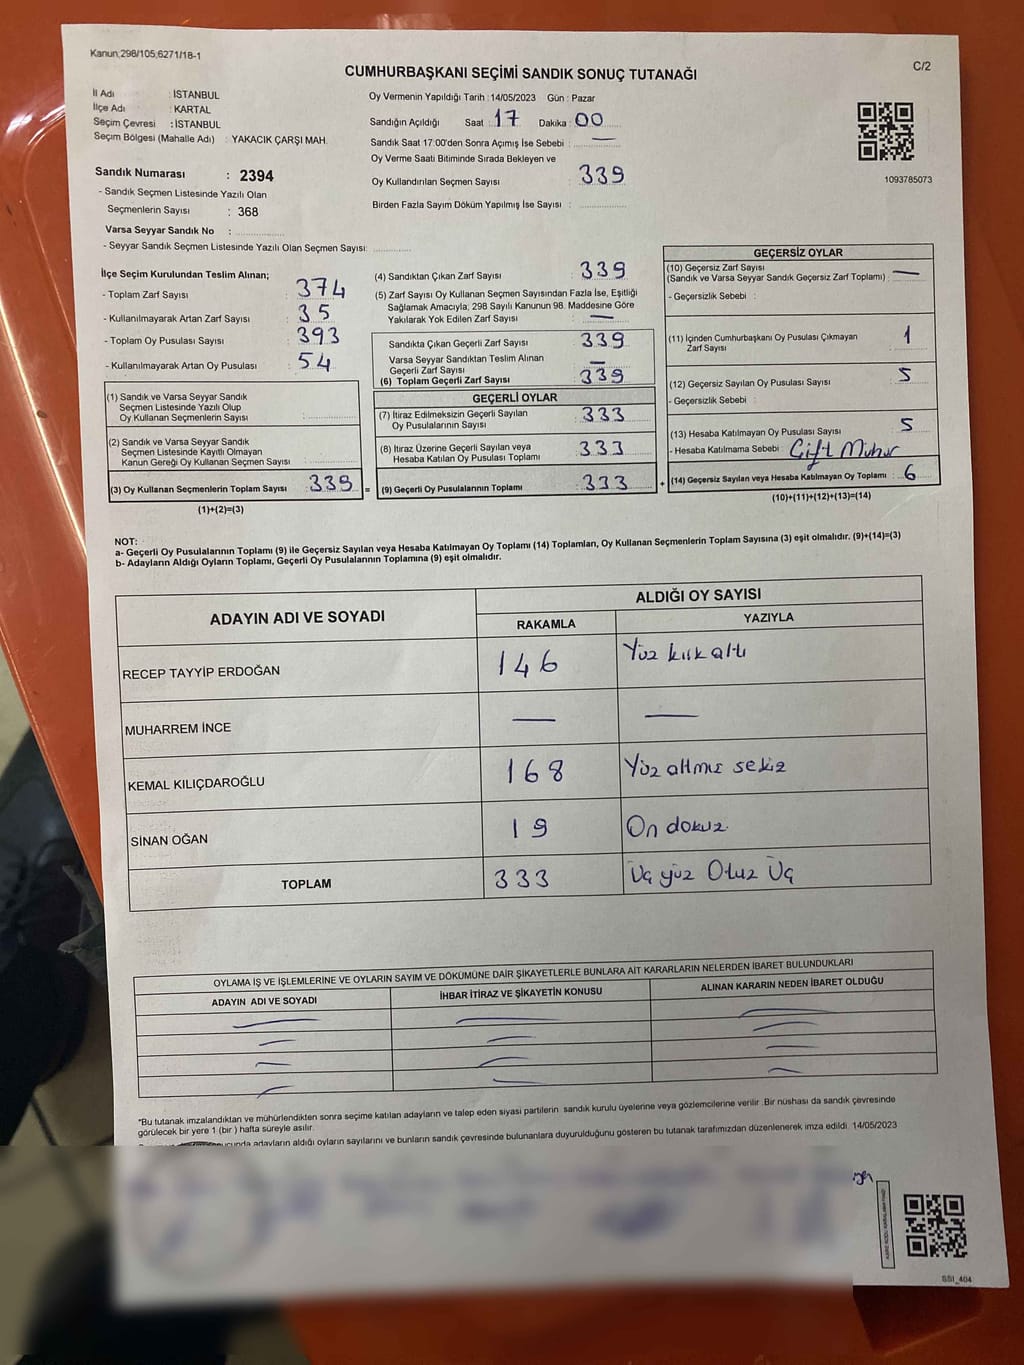 Kanun;298/105;6271/18-1
C/2
CUMHURBAŞKANI SEÇİMİ SANDIK SONUÇ TUTANAĞI
İl Adı : İSTANBUL
İlçe Adı : KARTAL
Seçim Çevresi : İSTANBUL
Seçim Bölgesi (Mahalle Adı) : YAKACIK ÇARŞI MAH.
Sandık Numarası : 2394
- Sandık Seçmen Listesinde Yazılı Olan
Seçmenlerin Sayısı : 368
Varsa Seyyar Sandık No :
- Seyyar Sandık Seçmen Listesinde Yazılı Olan Seçmen Sayısı:
Oy Vermenin Yapıldığı Tarih : 14/05/2023 Gün : Pazar
Sandığın Açıldığı Saat : 17 Dakika : 00
Sandık Saat 17:00'den Sonra Açımış İse Sebebi : —
Oy Verme Saati Bitiminde Sırada Bekleyen ve
Oy Kullandırılan Seçmen Sayısı : 339
Birden Fazla Sayım Döküm Yapılmış İse Sayısı :
1093785073
İlçe Seçim Kurulundan Teslim Alınan;
- Toplam Zarf Sayısı : 374
- Kullanılmayarak Artan Zarf Sayısı : 35
- Toplam Oy Pusulası Sayısı : 393
- Kullanılmayarak Artan Oy Pusulası : 54
(1) Sandık ve Varsa Seyyar Sandık
Seçmen Listesinde Yazılı Olup
Oy Kullanan Seçmenlerin Sayısı :
(2) Sandık ve Varsa Seyyar Sandık
Seçmen Listesinde Kayıtlı Olmayan
Kanun Gereği Oy Kullanan Seçmen Sayısı :
(3) Oy Kullanan Seçmenlerin Toplam Sayısı : 339 =
(1)+(2)=(3)
(4) Sandıktan Çıkan Zarf Sayısı : 339
(5) Zarf Sayısı Oy Kullanan Seçmen Sayısından Fazla İse, Eşitliği
Sağlamak Amacıyla; 298 Sayılı Kanunun 98. Maddesine Göre
Yakılarak Yok Edilen Zarf Sayısı : —
Sandıkta Çıkan Geçerli Zarf Sayısı : 339
Varsa Seyyar Sandıktan Teslim Alınan
Geçerli Zarf Sayısı : —
(6) Toplam Geçerli Zarf Sayısı : 339
GEÇERLİ OYLAR
(7) İtiraz Edilmeksizin Geçerli Sayılan
Oy Pusulalarının Sayısı : 333
(8) İtiraz Üzerine Geçerli Sayılan veya
Hesaba Katılan Oy Pusulası Toplamı : 333
(9) Geçerli Oy Pusulalarının Toplamı : 333 +
GEÇERSİZ OYLAR
(10) Geçersiz Zarf Sayısı
(Sandık ve Varsa Seyyar Sandık Geçersiz Zarf Toplamı) : —
- Geçersizlik Sebebi :
(11) İçinden Cumhurbaşkanı Oy Pusulası Çıkmayan
Zarf Sayısı : 1
(12) Geçersiz Sayılan Oy Pusulası Sayısı : 5
- Geçersizlik Sebebi :
(13) Hesaba Katılmayan Oy Pusulası Sayısı : 5
- Hesaba Katılmama Sebebi : Çift Mühür
(14) Geçersiz Sayılan veya Hesaba Katılmayan Oy Toplamı : 6
(10)+(11)+(12)+(13)=(14)
NOT:
a- Geçerli Oy Pusulalarının Toplamı (9) ile Geçersiz Sayılan veya Hesaba Katılmayan Oy Toplamı (14) Toplamları, Oy Kullanan Seçmenlerin Toplam Sayısına (3) eşit olmalıdır. (9)+(14)=(3)
b- Adayların Aldığı Oyların Toplamı, Geçerli Oy Pusulalarının Toplamına (9) eşit olmalıdır.
ADAYIN ADI VE SOYADI ALDIĞI OY SAYISI
RAKAMLA YAZIYLA
RECEP TAYYİP ERDOĞAN 146 Yüz kırk altı
MUHARREM İNCE — —
KEMAL KILIÇDAROĞLU 168 Yüz altmış sekiz
SİNAN OĞAN 19 On dokuz
TOPLAM 333 Üç yüz Otuz Üç
OYLAMA İŞ VE İŞLEMLERİNE VE OYLARIN SAYIM VE DÖKÜMÜNE DAİR ŞİKAYETLERLE BUNLARA AİT KARARLARIN NELERDEN İBARET BULUNDUKLARI
ADAYIN ADI VE SOYADI İHBAR İTİRAZ VE ŞİKAYETİN KONUSU ALINAN KARARIN NEDEN İBARET OLDUĞU
*Bu tutanak imzalandıktan ve mühürlendikten sonra seçime katılan adayların ve talep eden siyasi partilerin sandık kurulu üyelerine veya gözlemcilerine verilir .Bir nüshası da sandık çevresinde
görülecek bir yere 1 (bir ) hafta süreyle asılır.
adayların aldığı oyların sayılarını ve bunların sandık çevresinde bulunanlara duyurulduğunu gösteren bu tutanak tarafımızdan düzenlenerek imza edildi. 14/05/2023
SSI_404